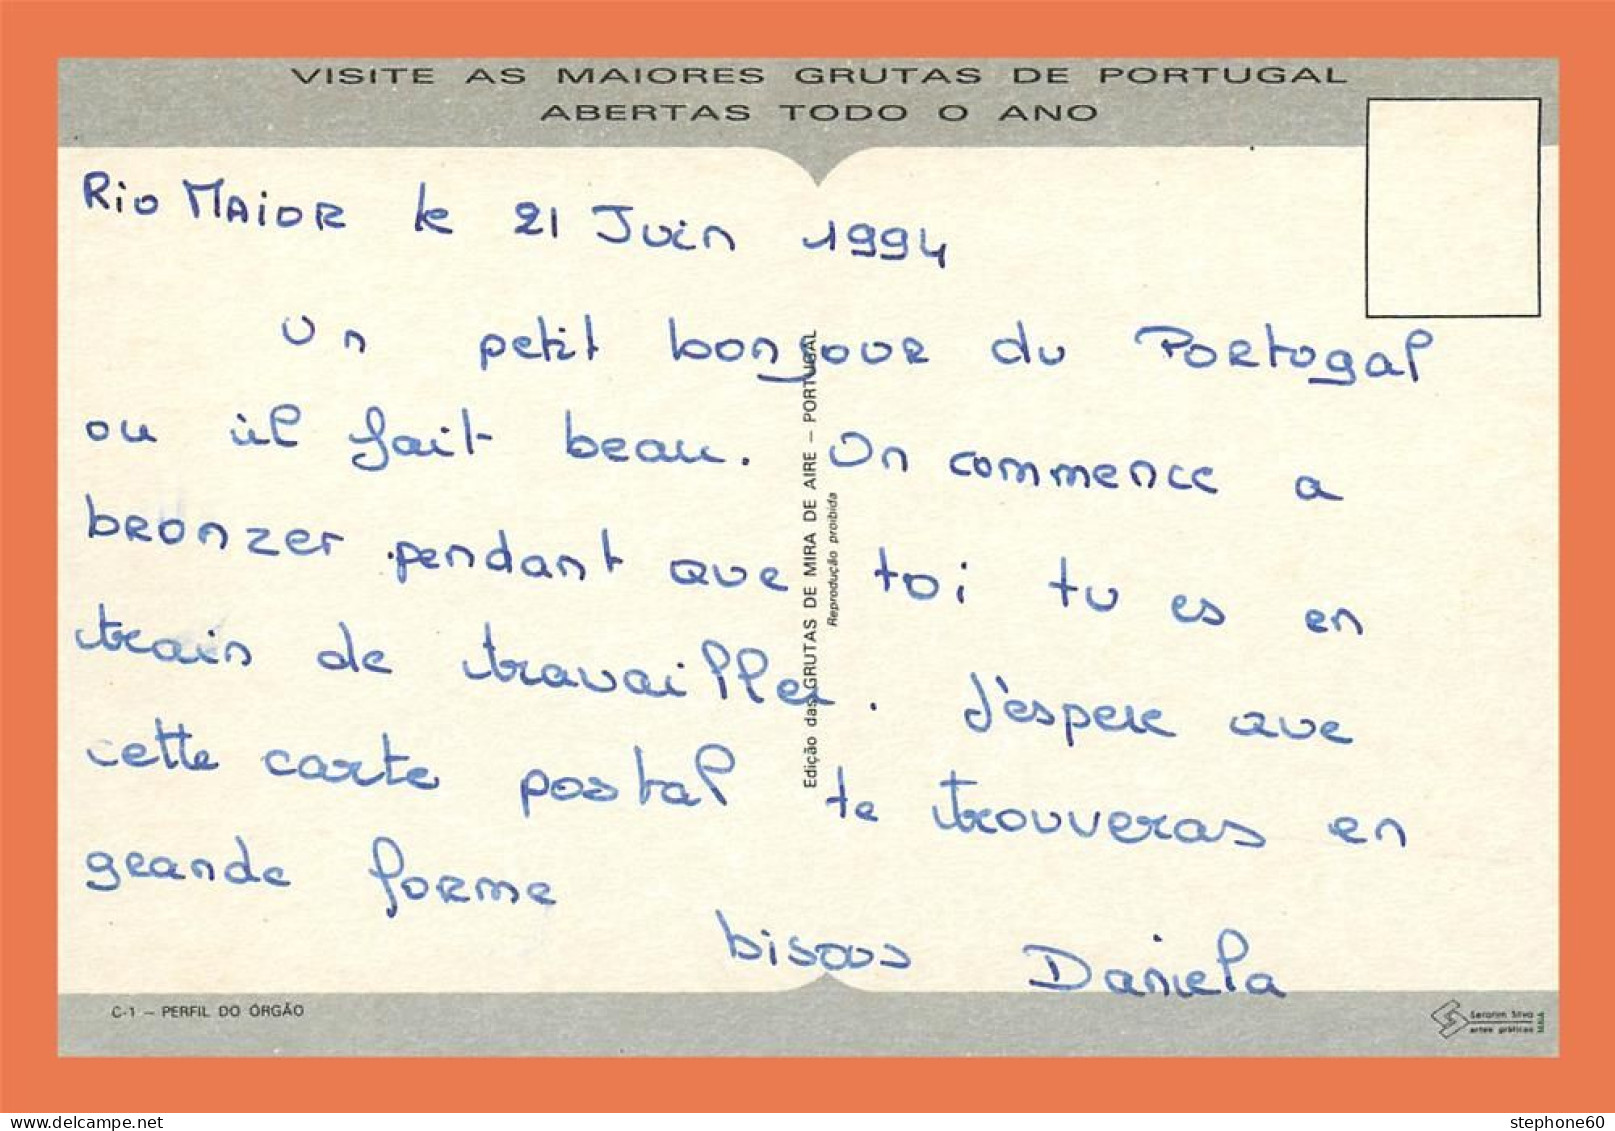 VISITE AS MAIORES GRUTAS DE PORTUGAL
ABERTAS TODO O ANO
Rio MAiOR le 21 Juin 1994
Un petit bonjour du Portugal
ou il fait beau. On commence a
bronzer pendant que toi tu es en
train de travailler. J'espere que
cette carte postal te trouveras en
grande forme
bisous Daniela
Edição das GRUTAS DE MIRA DE AIRE – PORTUGAL
Reprodução proibida
C-1 – PERFIL DO ÓRGÃO
Serafim Silva
artes gráficas
MAIA
stephone60